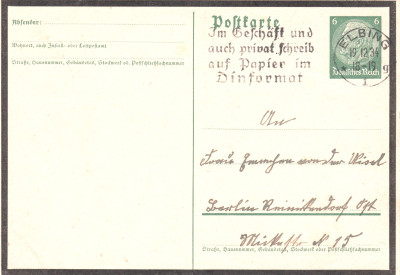 Absender:
Wohnort, auch Zustell- oder Leitpostamt
Straße, Hausnummer, Gebäudeteil, Stockwerk od. Postschließfachnummer
Postkarte
Im Geschäft und
auch privat schreib
auf Papier im
Dinformat
ELBING
19.12.34
18-19
g
1
6 6
Deutsches Reich
An
Frau Emmchen von der Wisel
Berlin Reinikendorf Ost
N 15
Straße, Hausnummer, Gebäudeteil, Stockwerk od. Postschließfachnummer